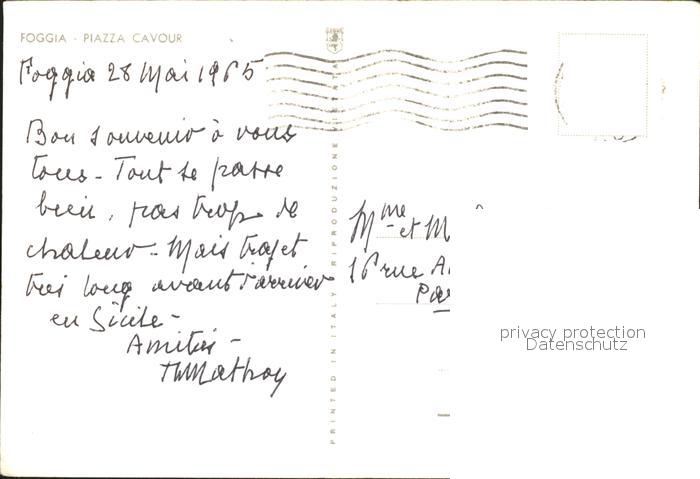 FOGGIA - PIAZZA CAVOUR
Foggia 28 Mai 1965
Bon souvenir à vous
tous - Tout se passe
bien, pas trop de
chaleur - Mais trajet
très long avant d'arriver
en Sicile -
Amitiés -
PRINTED IN ITALY RIPRODUZIONE
Mme et M
16 rue A
Par
privacy protection
Datenschutz